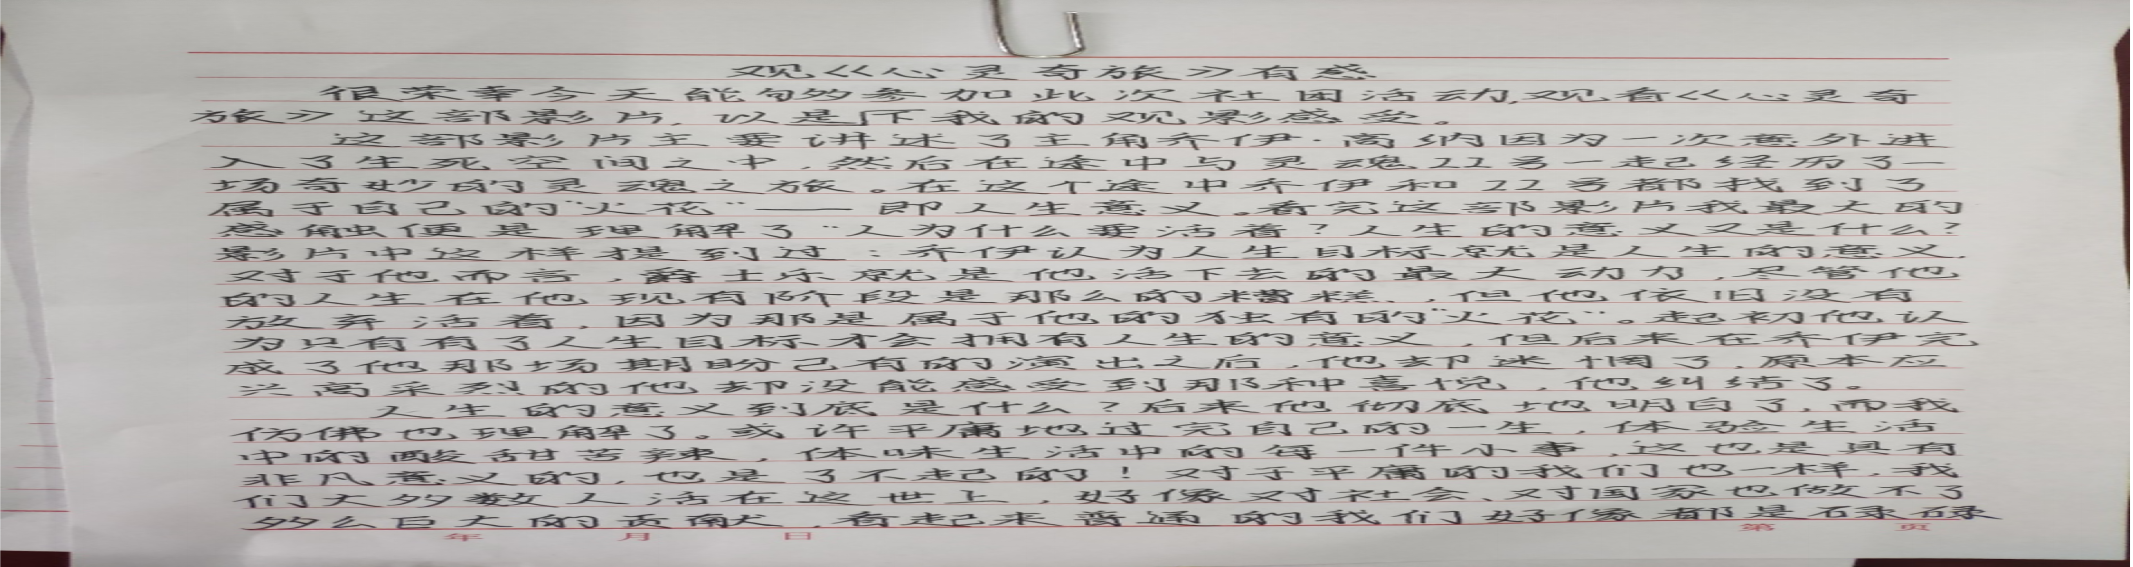 观《心灵奇旅》有感
很荣幸今天能够参加此次社团活动,观看《心灵奇
旅》这部影片,以是下我的观影感受。
这部影片主要讲述了主角乔伊·高纳因为一次意外进
入了生死空间之中,然后在途中与灵魂22号一起经历了一
场奇妙的灵魂之旅。在这个途中乔伊和22号都找到了
属于自己的“火花”——即人生意义。看完这部影片我最大的
感触便是理解了“人为什么要活着?人生的意义又是什么?
影片中这样提到过:乔伊认为人生目标就是人生的意义,
对于他而言,爵士乐就是他活下去的最大动力,尽管他
的人生在他现有阶段是那么的糟糕,但他依旧没有
放弃活着,因为那是属于他的独有的“火花”。起初他认
为只有有了人生目标才会拥有人生的意义,但后来在乔伊完
成了他那场期盼已有的演出之后,他却迷惘了,原本应
兴高采烈的他却没能感受到那种喜悦,他纠结了。
人生的意义到底是什么?后来他彻底地明白了,而我
仿佛也理解了。或许平庸地过完自己的一生,体验生活
中的酸甜苦辣,体味生活中的每一件小事,这也是具有
非凡意义的,也是了不起的!对于平庸的我们也一样,我
们大多数人活在这世上,好像对社会、对国家也做不了
多么巨大的贡献,看起来普通的我们好像都是碌碌
年 月 日 第 页